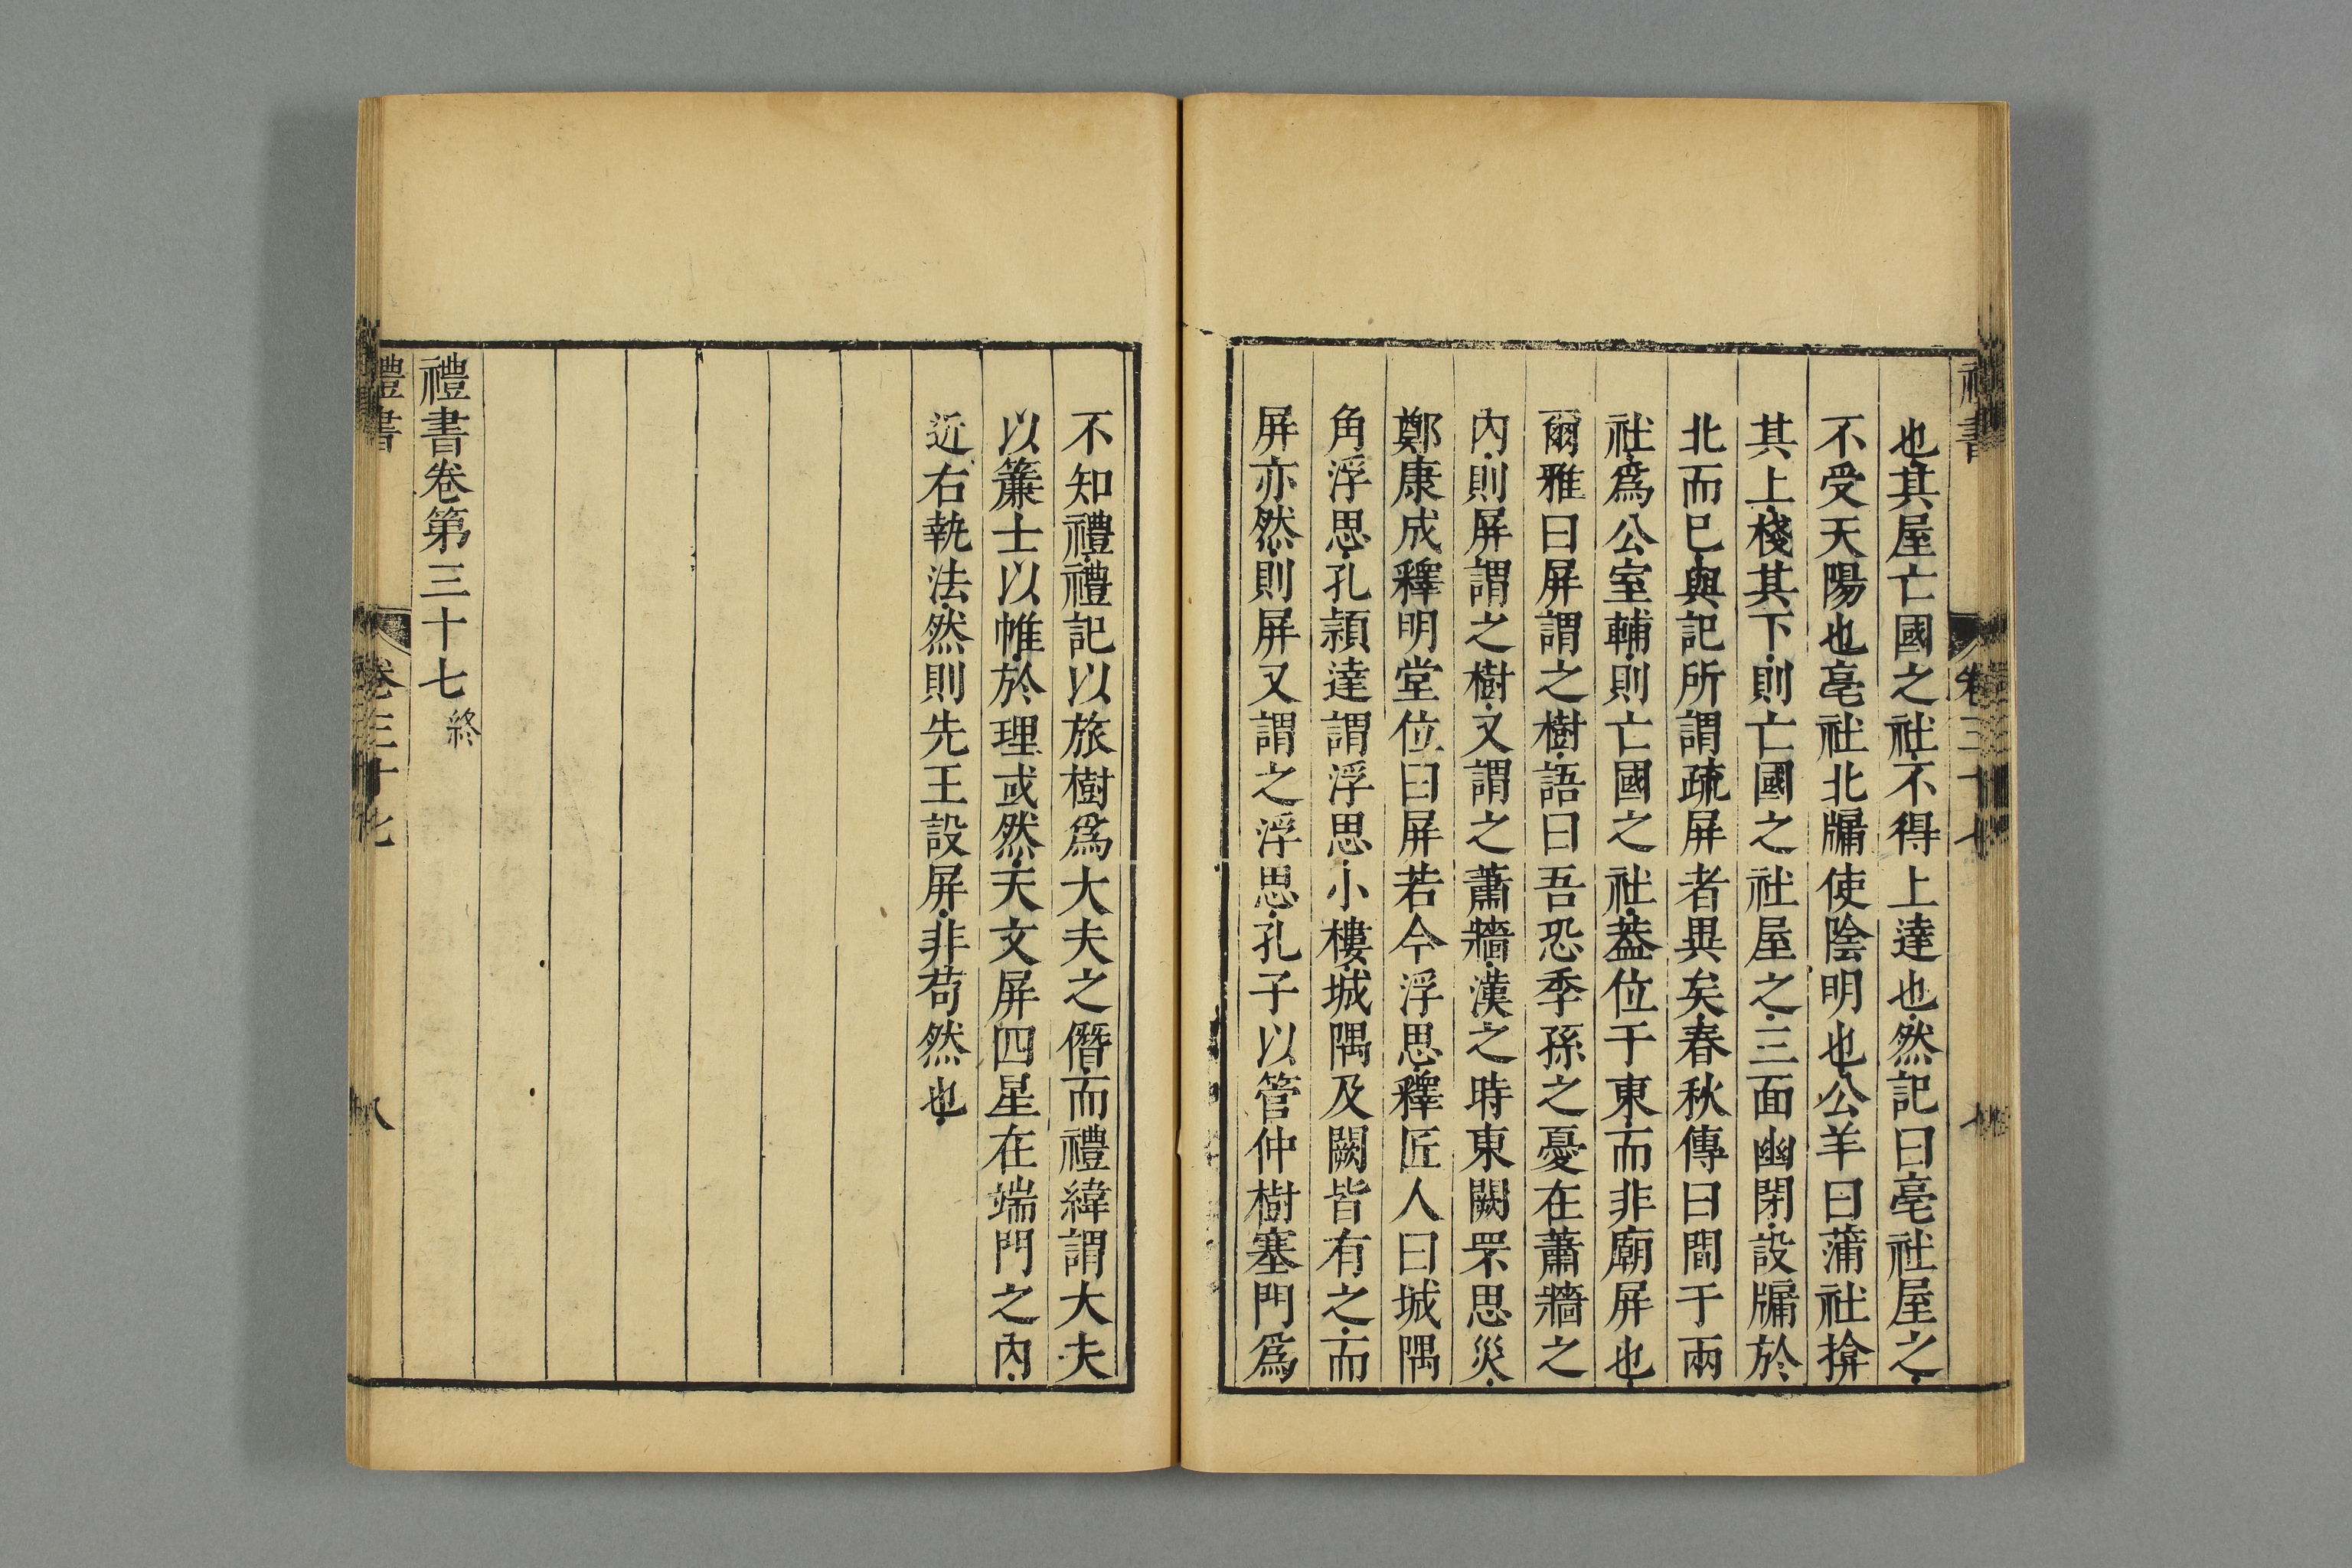 也其屋亡國之社不得上達也然記曰亳社屋之
不受天陽也亳社北牖使陰明也公羊曰蒲社揜
其上棧其下則亡國之社屋之三面幽閉設牖於
北而已與記所謂疏屏者異矣春秋傳曰間于兩
社爲公室輔則亡國之社葢位于東而非廟屏也
爾雅曰屏謂之樹語曰吾恐季孫之憂在蕭牆之
內則屏謂之樹又謂之蕭牆漢之時東闕罘思災
鄭康成釋明堂位曰屏若今浮思釋匠人曰城隅
角浮思孔頴達謂浮思小樓城隅及闕皆有之而
屏亦然則屏又謂之浮思孔子以管仲樹塞門爲
不知禮禮記以旅樹爲大夫之僭而禮緯謂大夫
以簾士以帷於理或然天文屏四星在端門之內
近右執法然則先王設屏非苟然也
禮書卷第三十七終
禮書 卷三十七 八